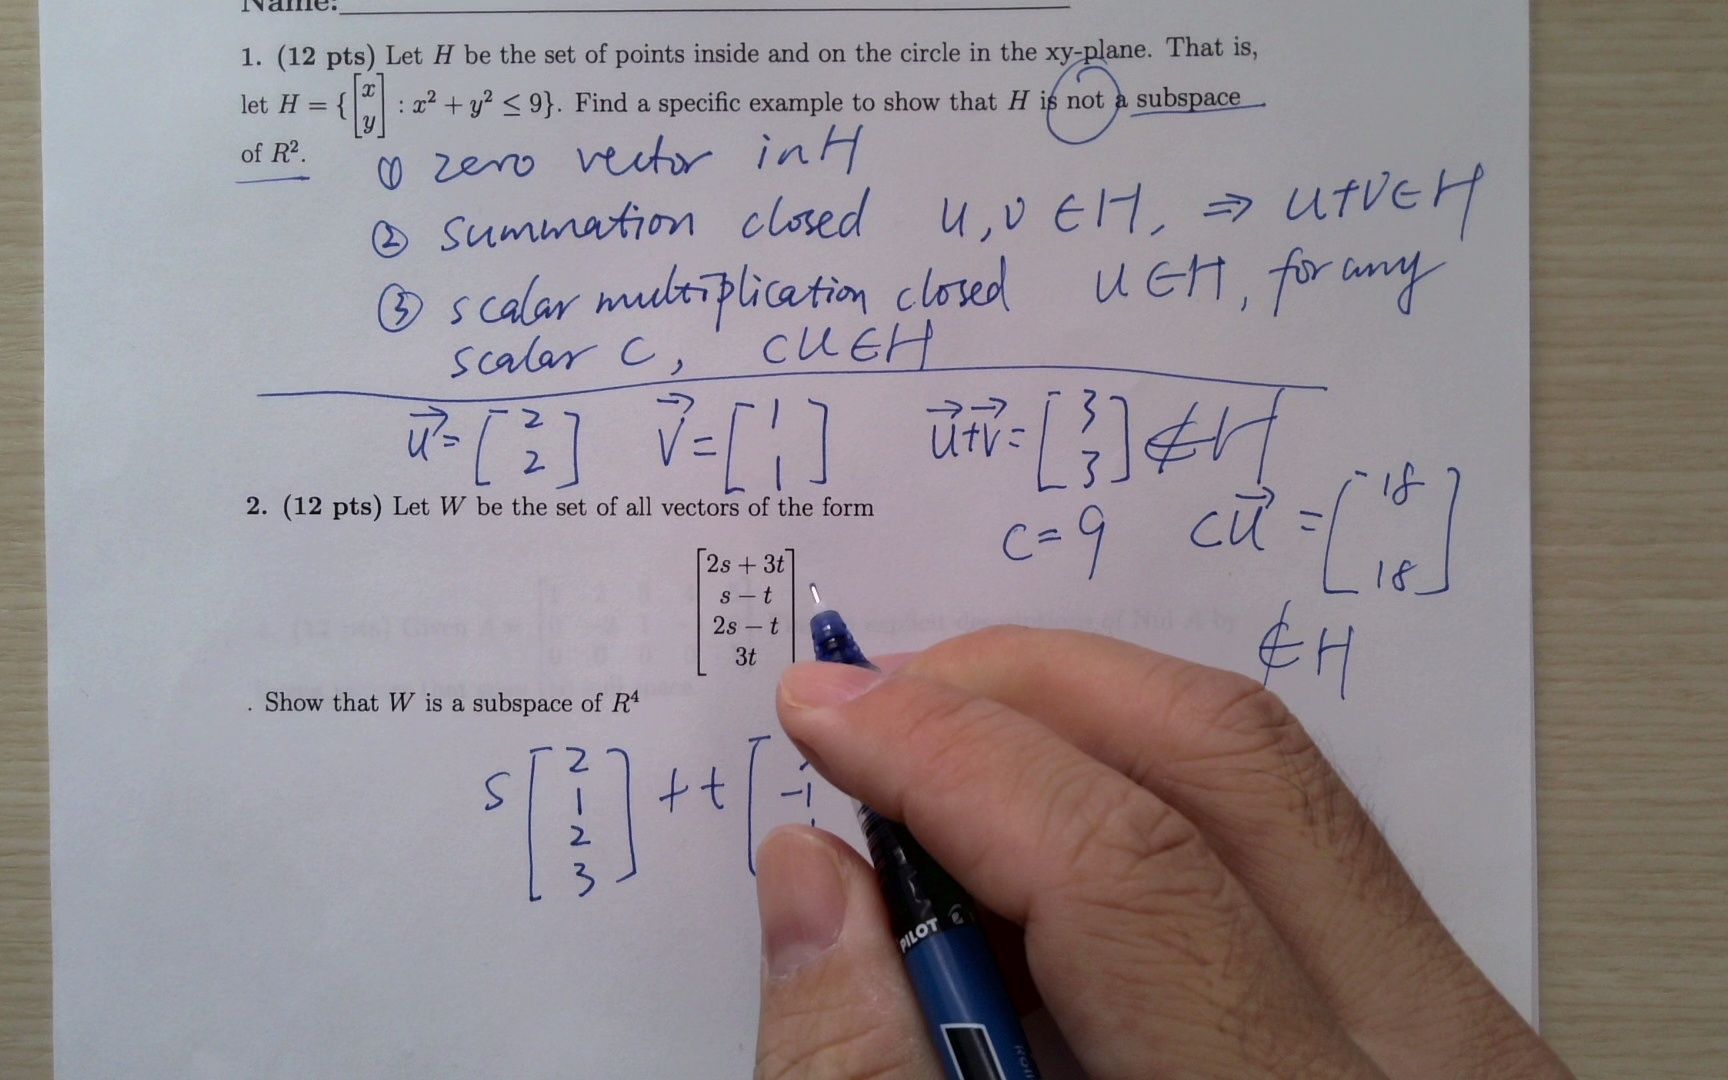 Name:
1. (12 pts) Let H be the set of points inside and on the circle in the xy-plane. That is,
let H = { [x y] : x² + y² ≤ 9}. Find a specific example to show that H is not a subspace
of R².
① zero vector in H
② summation closed u, v ∈ H, ⇒ u+v ∈ H
③ scalar multiplication closed u ∈ H, for any
scalar c, cu ∈ H
u⃗ = [2 2] v⃗ = [1 1] u⃗+v⃗ = [3 3] ∉ H
2. (12 pts) Let W be the set of all vectors of the form
c = 9 cu⃗ = [18 18]
∉ H
[2s + 3t
s − t
2s − t
3t]
. Show that W is a subspace of R⁴
s [2 1 2 3] + t [ -1
PILOT